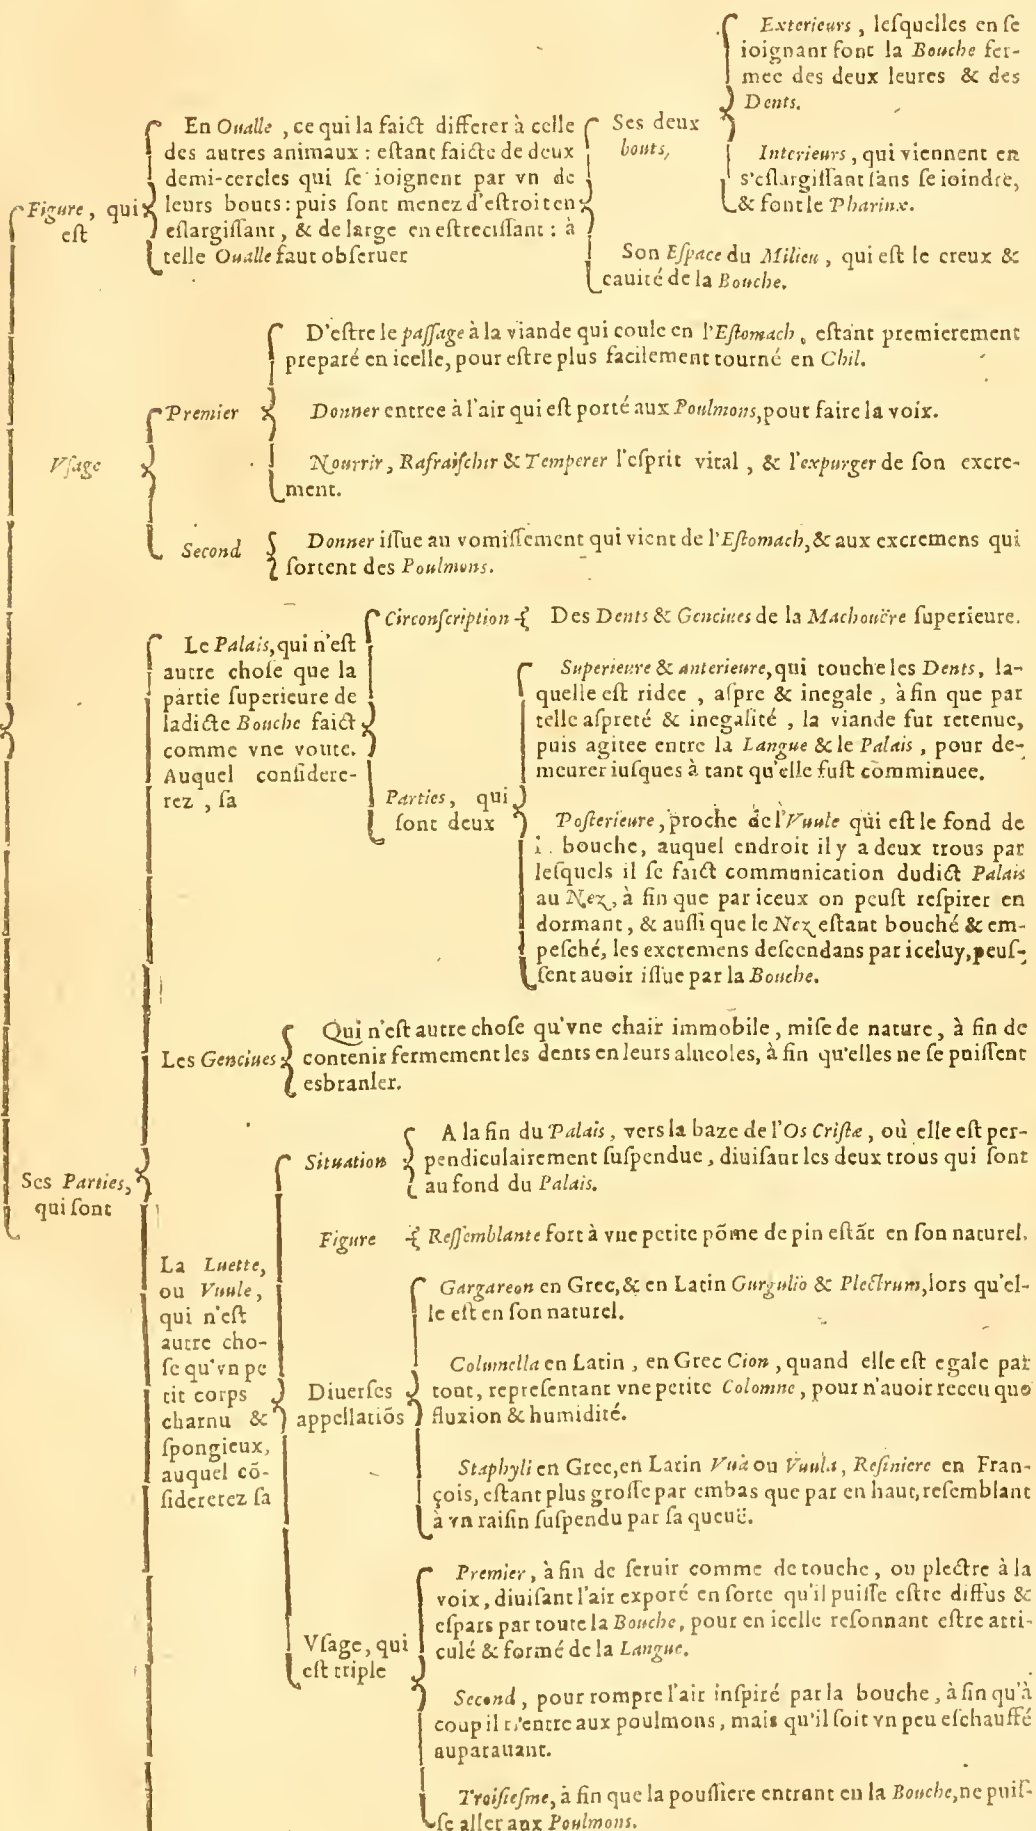 Exterieurs, leſquelles en ſe
ioignant font la Bouche fer-
mee des deux leures & des
Dents.
Ses deux
bouts,
Interieurs, qui viennent en
s'eſlargiſſant ſans ſe ioindre,
& font le Pharinx.
Figure, qui
eſt
En Oualle, ce qui la faict differer à celle
des autres animaux : eſtant faicte de deux
demi-cercles qui ſe ioignent par vn de
leurs bouts: puis ſont menez d'eſtroit en
eſlargiſſant, & de large en eſtreciſſant : à
telle Oualle faut obſeruer
Son Eſpace du Milieu, qui eſt le creux &
cauité de la Bouche.
Vſage
Premier
D'eſtre le paſſage à la viande qui coule en l'Eſtomach, eſtant premierement
preparé en icelle, pour eſtre plus facilement tourné en Chil.
Donner entree à l'air qui eſt porté aux Poulmons, pour faire la voix.
Nourrir, Rafraiſchir & Temperer l'eſprit vital, & l'expurger de ſon excre-
ment.
Second
Donner iſſue au vomiſſement qui vient de l'Eſtomach, & aux excremens qui
ſortent des Poulmons.
Ses Parties,
qui ſont
Le Palais, qui n'eſt
autre choſe que la
partie ſuperieure de
ladicte Bouche faict
comme vne voute.
Auquel conſidere-
rez, ſa
Circonſcription
Des Dents & Genciues de la Machouëre ſuperieure.
Parties, qui
ſont deux
Superieure & anterieure, qui touche les Dents, la-
quelle eſt ridee, aſpre & inegale, à fin que par
telle aſpreté & inegalité, la viande fut retenue,
puis agitee entre la Langue & le Palais, pour de-
meurer iuſques à tant qu'elle fuſt comminuee.
Poſterieure, proche de l'Vuule qui eſt le fond de
bouche, auquel endroit il y a deux trous par
leſquels il ſe faict communication dudict Palais
au Nez, à fin que par iceux on peuſt reſpirer en
dormant, & auſſi que le Nez eſtant bouché & em-
peſché, les excremens deſcendans par iceluy, peuſ-
ſent auoir iſſue par la Bouche.
Les Genciues
Qui n'eſt autre choſe qu'vne chair immobile, miſe de nature, à fin de
contenir fermement les dents en leurs alueoles, à fin qu'elles ne ſe puiſſent
esbranler.
La Luette,
ou Vuule,
qui n'eſt
autre cho-
ſe qu'vn pe
tit corps
charnu &
ſpongieux,
auquel cō-
ſidererez ſa
Situation
A la fin du Palais, vers la baze de l'Os Criſtæ, où elle eſt per-
pendiculairement ſuſpendue, diuiſant les deux trous qui ſont
au fond du Palais.
Figure
Reſſemblante fort à vne petite pōme de pin eſtāt en ſon naturel.
Diuerſes
appellatiōs
Gargareon en Grec, & en Latin Gurgulio & Plectrum, lors qu'el-
le eſt en ſon naturel.
Columella en Latin, en Grec Cion, quand elle eſt egale par
tout, repreſentant vne petite Colomne, pour n'auoir receu que
fluxion & humidité.
Staphyli en Grec, en Latin Vua ou Vuula, Reſiniere en Fran-
çois, eſtant plus groſſe par embas que par en haut, reſemblant
à vn raiſin ſuſpendu par ſa queuë.
Vſage, qui
eſt triple
Premier, à fin de ſeruir comme de touche, ou plectre à la
voix, diuiſant l'air exporé en ſorte qu'il puiſſe eſtre diffus &
eſpars par toute la Bouche, pour en icelle reſonnant eſtre arti-
culé & formé de la Langue.
Second, pour rompre l'air inſpiré par la bouche, à fin qu'à
coup il n'entre aux poulmons, mais qu'il ſoit vn peu eſchauffé
auparauant.
Troiſieſme, à fin que la pouſſiere entrant en la Bouche, ne puiſ-
ſe aller aux Poulmons.